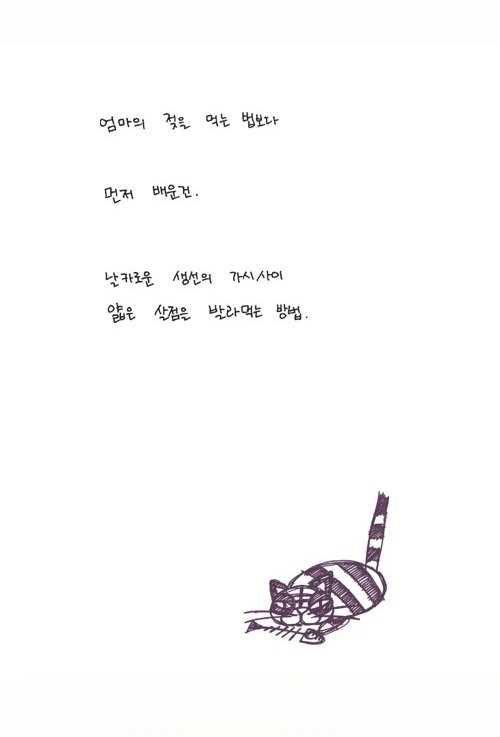 엄마의 젖을 먹는 법보다
먼저 배운건.
날카로운 생선의 가시사이
얇은 살점을 발라먹는 방법.